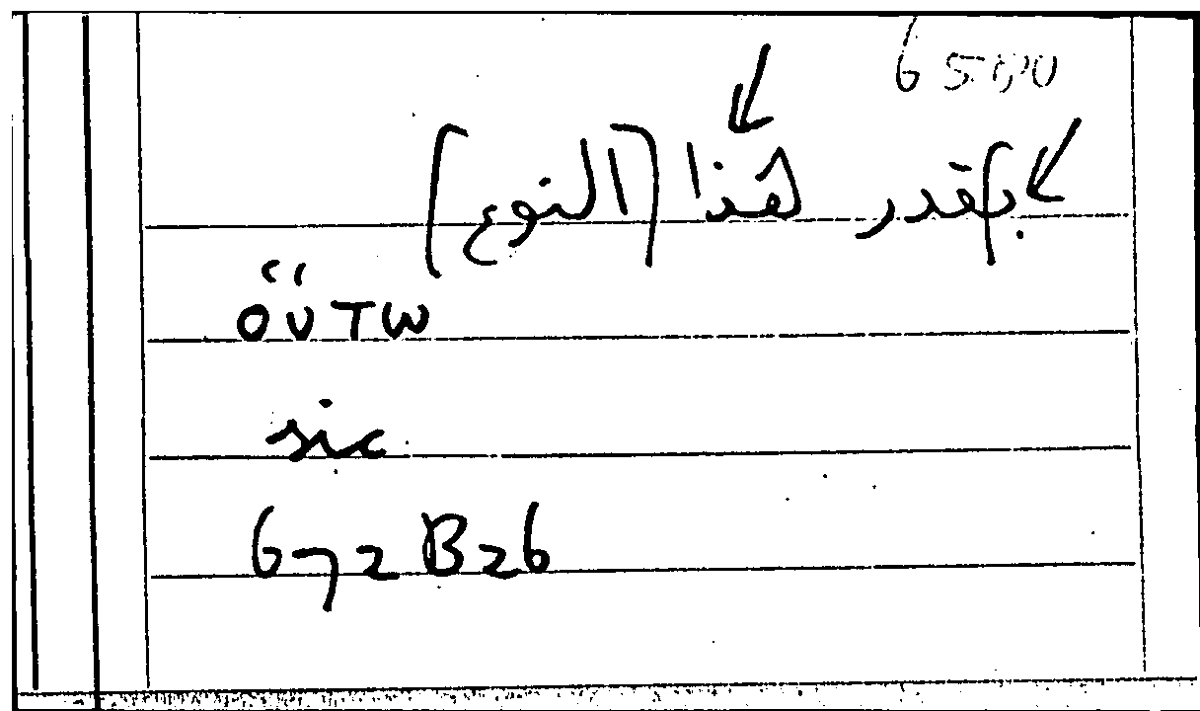 6500
بقدر هذا (النوع)
öü TW
sic
672B26